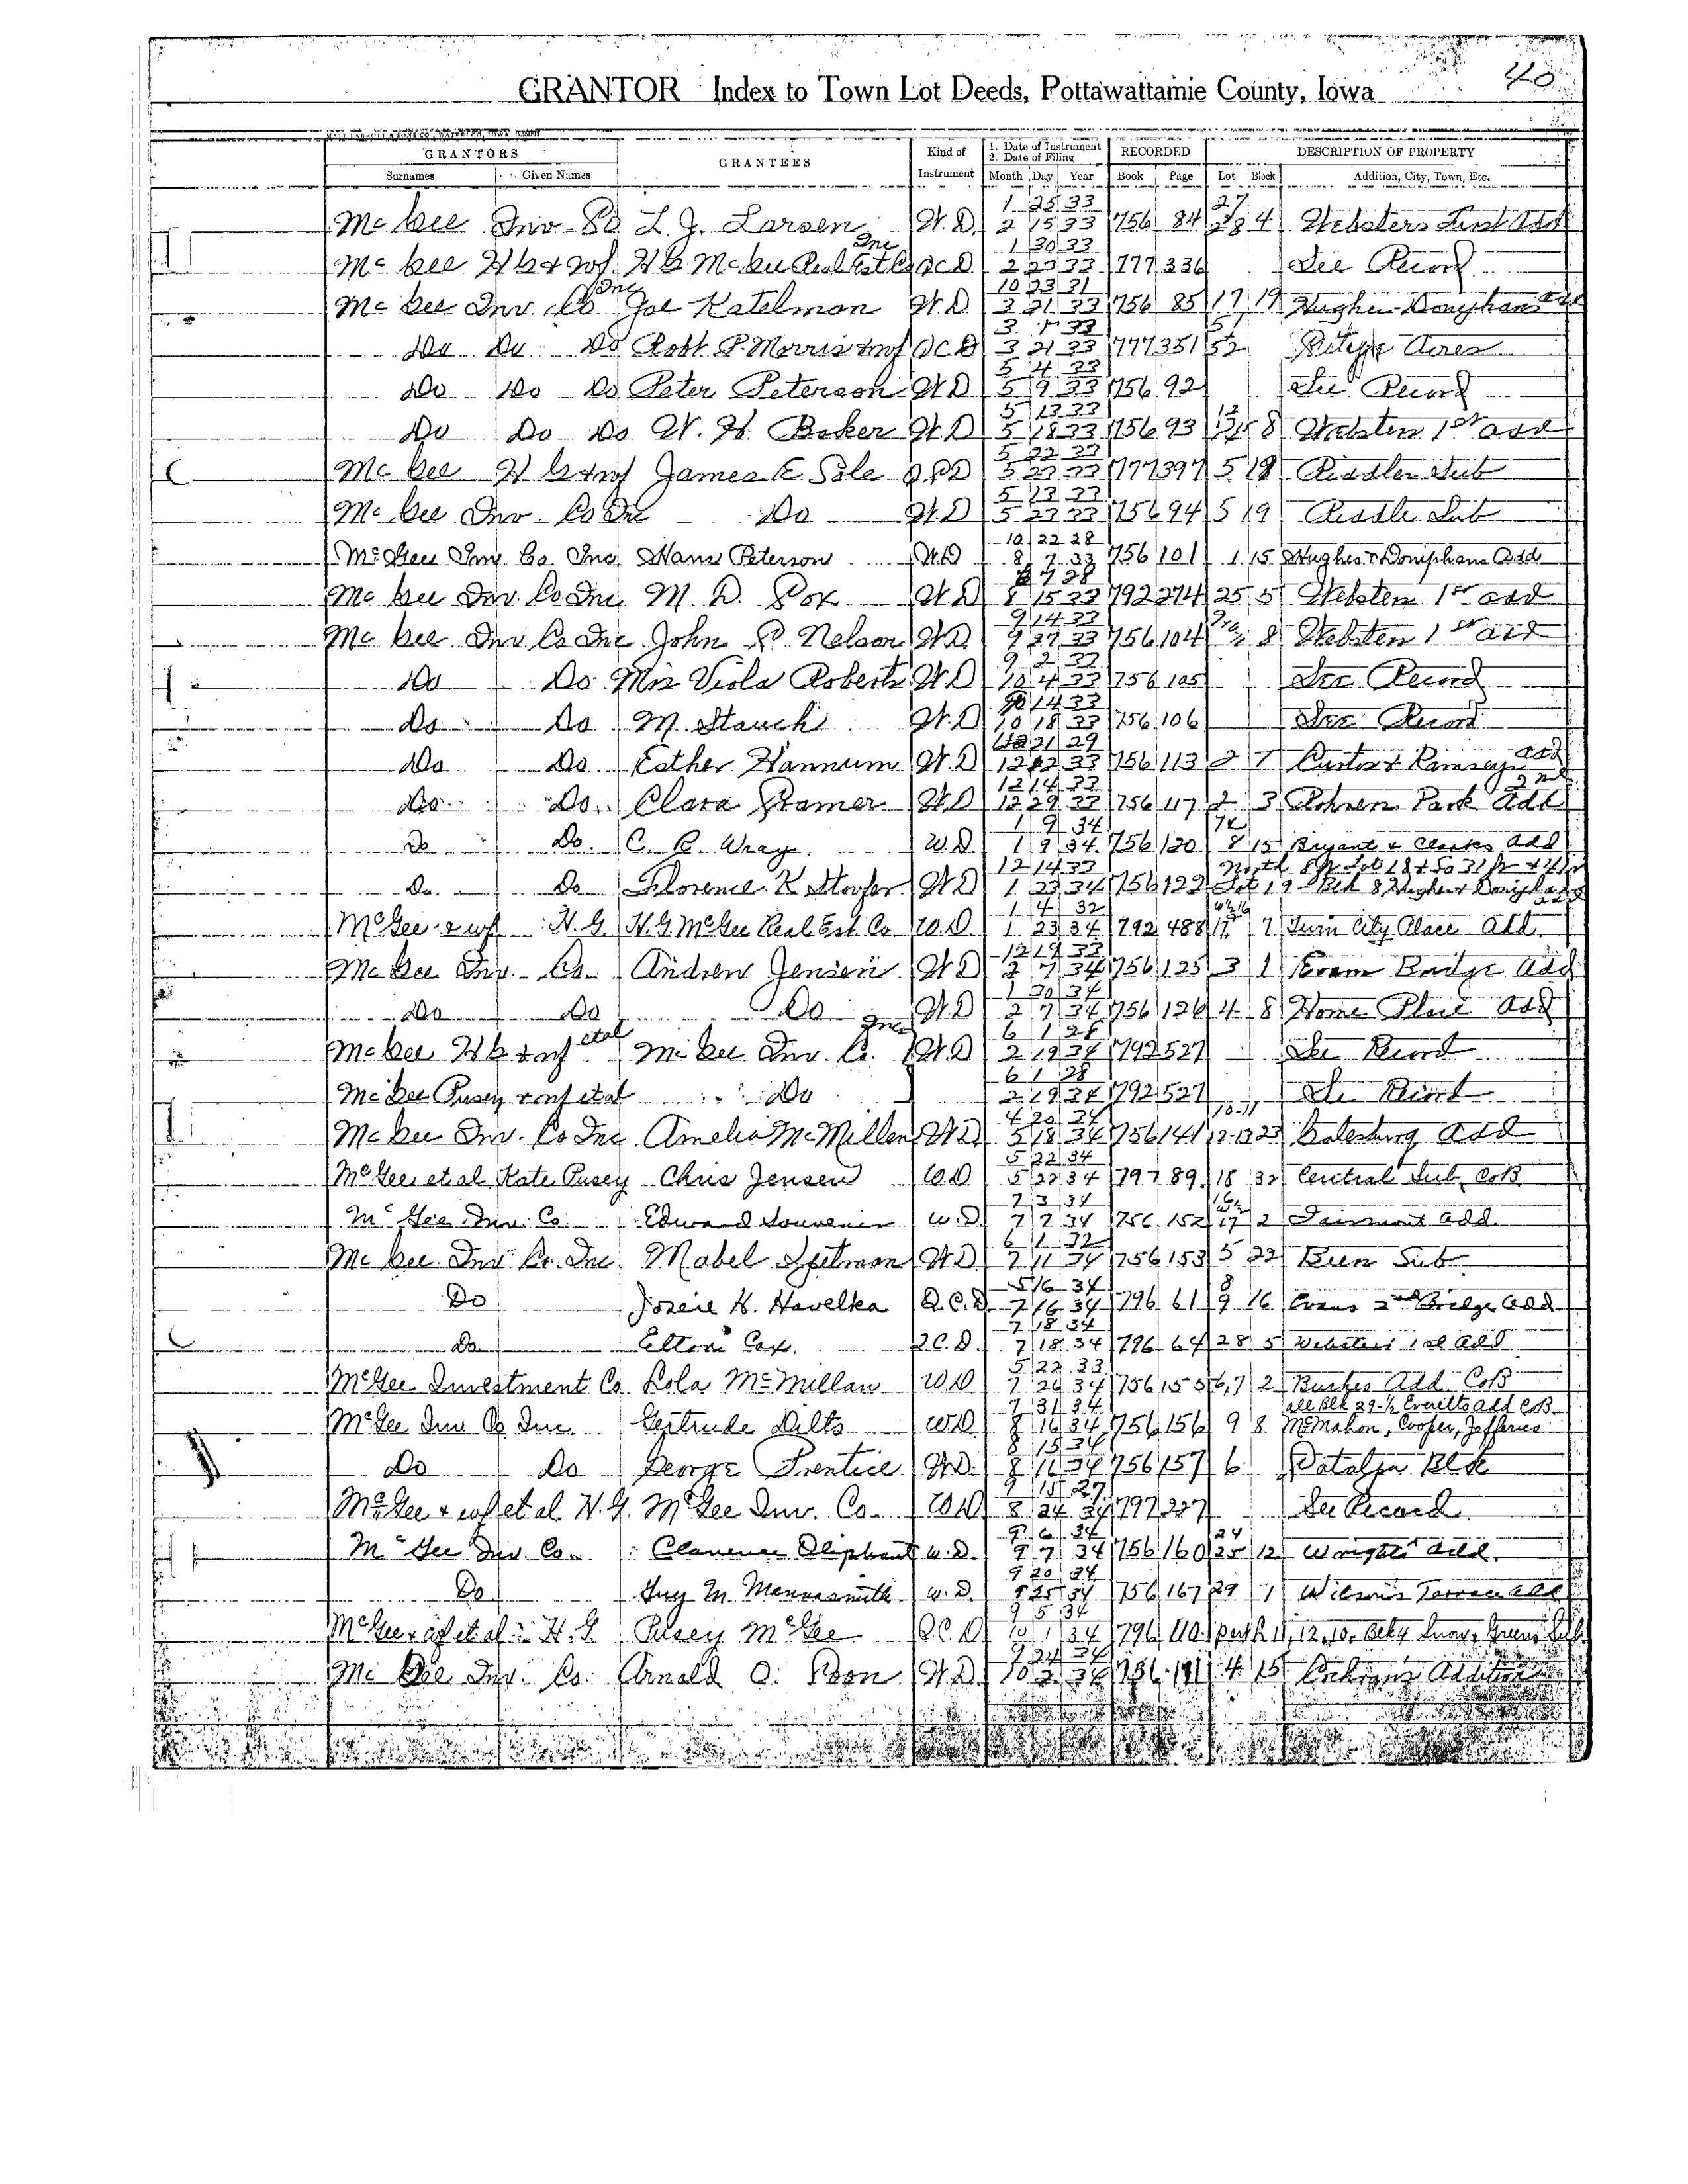 40
GRANTOR Index to Town Lot Deeds, Pottawattamie County, Iowa
GRANTORS GRANTEES Kind of Instrument 1. Date of Instrument 2. Date of Filing RECORDED DESCRIPTION OF PROPERTY
Surnames Given Names Month Day Year Book Page Lot Block Addition, City, Town, Etc.
1 25 33 27
McGee Inv Co L. J. Larsen W.D. 2 15 33 756 84 28 4 Websters First Add
1 30 33
McGee H G & wf H G McGee Real Est Co Inc Q C D 2 23 33 777 336 See Record
10 23 31
McGee Inv Co Inc Joe Katelman W D 3 21 33 756 85 17 19 Hughes Doniphans Add
3 1 33 51
Do Do Do Robt P. Morris & wf Q C D 3 21 33 777 351 52 Acres
5 4 33
Do Do Do Peter Peterson W D 5 9 33 756 92 See Record
5 13 33
Do Do Do W. H. Baker W D 5 18 33 756 93 8 Websters 1st Add
5 22 33
McGee H G & wf James E Sole Q C D 5 23 33 777 397 5 18 Riddles Sub
5 13 33
McGee Inv Co Inc Do W D 5 23 33 756 94 5 19 Riddle Sub
10 22 28
McGee Inv. Co Inc Hans Peterson W.D 8 7 33 756 101 1 15 Hughes & Doniphans Add
7 28
McGee Inv. Co Inc M. D. Cox W D 8 15 33 792 274 25 5 Websters 1st Add
9 14 33
McGee Inv Co Inc John P. Nelson W D 9 27 33 756 104 8 Websters 1st Add
9 2 33
Do Do Mrs Viola Roberts W D 10 4 33 756 105 See Record
10 14 33
Do Do M. Stauch W. D 10 18 33 756 106 See Record
21 29
Do Do Esther Hannum W. D 12 12 33 756 113 2 7 Curtis & Ramseys Add
12 14 33 2nd
Do Do Clara Cramer W D 12 29 33 756 117 2 3 Rohrers Park Add
1 9 34
Do Do C. C. Wray W.D. 1 9 34 756 120 8 15 Bryant & Clarks Add
12 14 33 North 8 ft Lot 18 & So 31 ft
Do Do Florence K W D 1 23 34 756 122 Lot 19 Blk 8 Hughes & Doniphans Add
1 4 32
McGee & wf H. G. H. G. McGee Real Est. Co W. D. 1 23 34 792 488 17 7 Twin City Place Add.
12 19 33
McGee Inv. Co. Andrew Jensen W D 2 7 34 756 125 3 1 Evans Bridge Add
1 30 34
Do Do Do W D 2 7 34 756 126 4 8 Home Place Add
6 1 28
McGee H G & wf etal McGee Inv. Co. Inc W.D 2 19 34 792 527 See Record
6 1 28
McGee Pusey & wf etal Do 2 19 34 792 527 See Record
4 20 34 10-11
McGee Inv. Co Inc Amelia McMillen W D 5 18 34 756 141 12-13 23 Galesburg Add
5 22 34
McGee et al Kate Pusey Chris Jensen W.D. 5 22 34 797 89 18 32 Central Sub. C.B.
7 3 34
McGee Inv. Co Edward Souvenir W.D. 7 7 34 756 152 17 2 Fairmont Add.
6 1 32
McGee Inv Co. Inc Mabel Spelman W D 7 11 34 756 153 5 22 Beers Sub
5 16 34 8
Do Josie K. Havelka Q.C.D. 7 16 34 796 61 9 16 Evans 2nd Bridge Add
7 18 34
Do Elton Cox. Q.C.D. 7 18 34 796 64 28 5 Websters 1st Add
5 22 33
McGee Investment Co Lola McMillan W D 7 26 34 756 155 6,7 2 Burkes Add C.B
7 31 34 all Blk 29-½ Everitts Add C.B.
McGee Inv Co Inc. Gertrude Dilts W.D 8 16 34 756 156 9 8 McMahon, Cooper, Jefferies
8 15 34
Do Do George Prentice W D. 8 16 34 756 157 6 Catalpa Blk
9 15 27
McGee & wf et al H. G. McGee Inv. Co. W D 8 24 34 797 227 See Record
9 6 34 24
McGee Inv. Co. Clarence Oliphant W.D. 9 7 34 756 160 25 12 Wrights Add.
9 20 34
Do Guy M. Mannasmith W.D 9 25 34 756 167 29 1 Wilsons Terrace Add
9 5 34
McGee & wf et al H. G. Pusey McGee Q C D 10 1 34 796 110 11, 12, 10, Blk 4 Snow & Greens Sub.
9 24 34
McGee Inv. Co. Arnold O. W D 10 2 34 756 4 15 Cochrans Addition